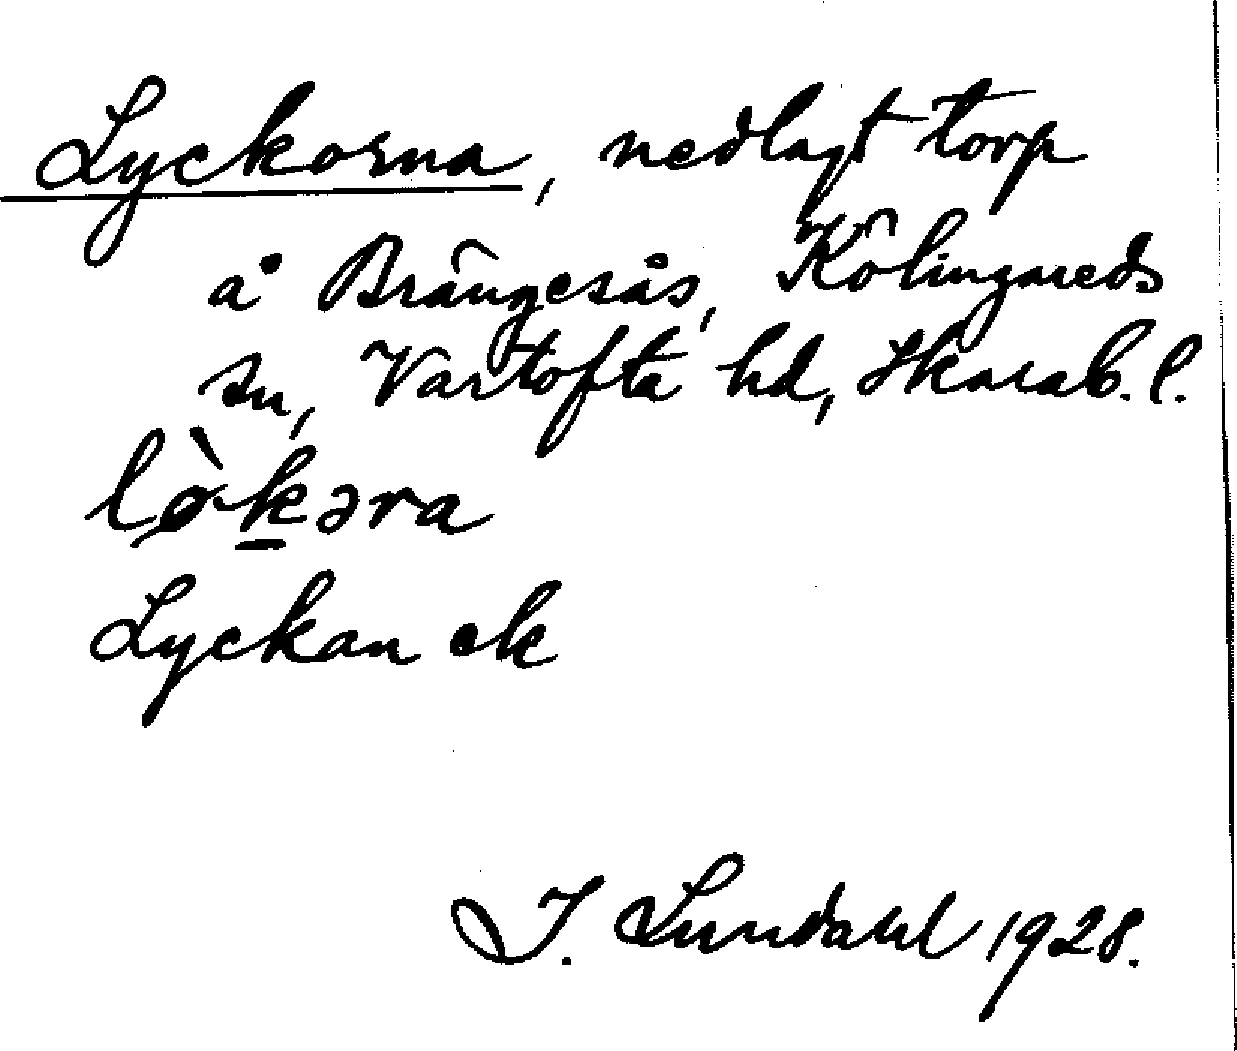 Lyckorna, nedlagt torp
å Brängesås, Kölingareds
sn, Vartofta hd, Skarab. l.
lø̀kəra
Lyckan ek
I. Lundahl 1928.